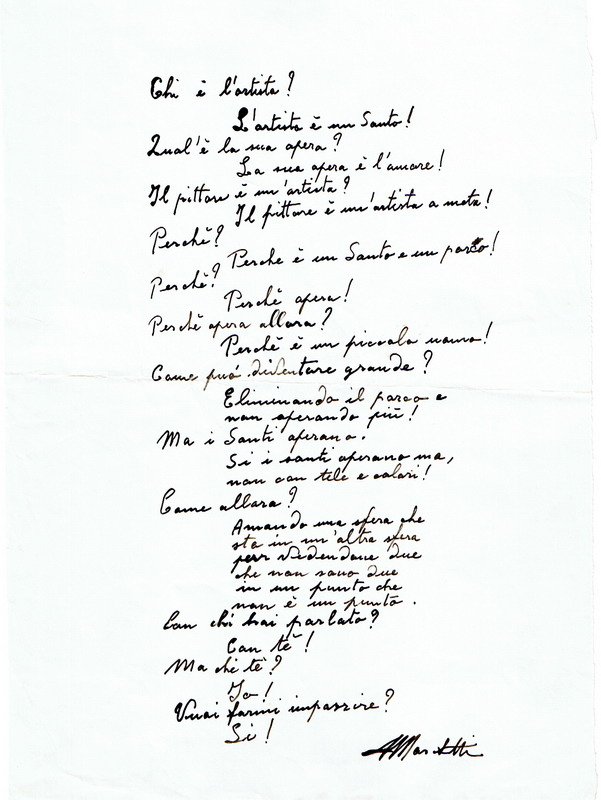 Chi è l'artista?
L'artista è un Santo!
Qual'è la sua opera?
La sua opera è l'amore!
Il pittore è un'artista?
Il pittore è un'artista a metà!
Perchè?
Perche è un Santo e un porco!
Perchè?
Perchè opera!
Perchè opera allora?
Perchè è un piccolo uomo!
Come può diventare grande?
Eliminando il porco e
non operando più!
Ma i Santi operano.
Si i santi operano ma,
non con tele e colori!
Come allora?
Amando una sfera che
sta in un'altra sfera
pur vedendone due
che non sono due
in un punto che
non è un punto.
Con chi hai parlato?
Con tè!
Ma chi tè?
Io!
Vuoi farmi impazzire?
Si!